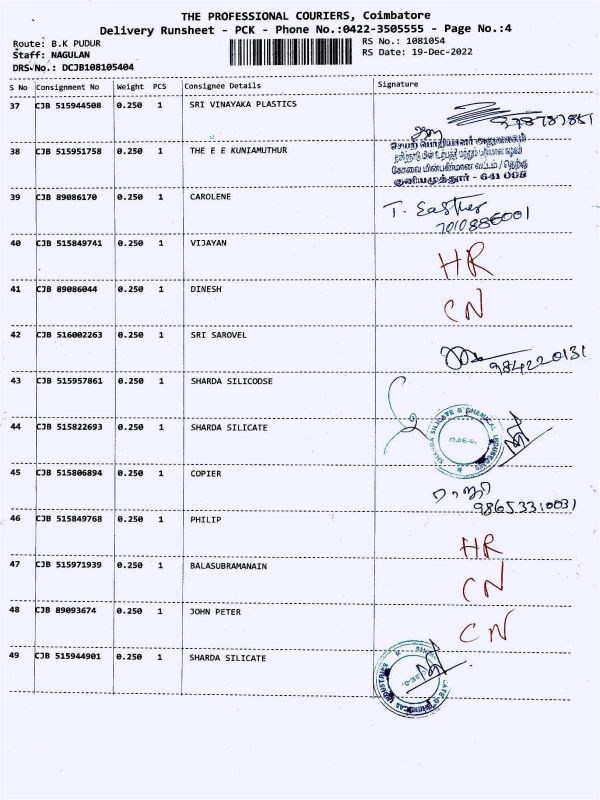 THE PROFESSIONAL COURIERS, Coimbatore
Delivery Runsheet - PCK - Phone No.:0422-3505555 - Page No.:4
Route: B.K PUDUR
RS No.: 1081054
Staff: NAGULAN
RS Date: 19-Dec-2022
DRS-No.: DCJB108105404
S No Consignment No Weight PCS Consignee Details Signature
37 CJB 515944508 0.250 1 SRI VINAYAKA PLASTICS
38 CJB 515951758 0.250 1 THE E E KUNIAMUTHUR
செயற் பொறியாளர் அலுவலகம்
தமிழ்நாடு மின் உற்பத்தி மற்றும் பகிர்மான கழகம்
கோவை மின்பகிர்மான வட்டம் / தெற்கு
குனியமுத்தூர் - 641 008
39 CJB 89086170 0.250 1 CAROLENE T. Easther
7010886001
40 CJB 515849741 0.250 1 VIJAYAN HR
41 CJB 89086044 0.250 1 DINESH CN
42 CJB 516002263 0.250 1 SRI SAROVEL
984220131
43 CJB 515957861 0.250 1 SHARDA SILICODSE
44 CJB 515822693 0.250 1 SHARDA SILICATE
SHARDA SILICATE & CHEMICAL INDUSTRIES
CJB-8.
45 CJB 515806894 0.250 1 COPIER ராஜு
98653310031
46 CJB 515849768 0.250 1 PHILIP HR
47 CJB 515971939 0.250 1 BALASUBRAMANAIN CN
48 CJB 89093674 0.250 1 JOHN PETER CN
49 CJB 515944901 0.250 1 SHARDA SILICATE